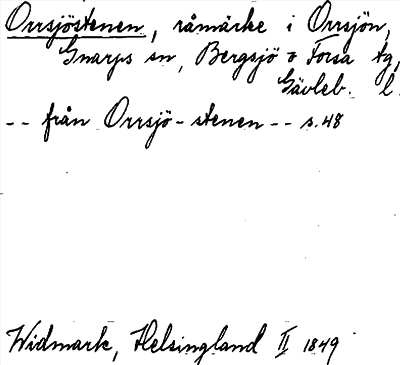 Orrsjöstenen, råmärke i Orrsjön,
Gnarps sn, Bergsjö o Forsa tg,
Gävleb. l.
-- från Orrsjö-stenen -- s. 48
Widmark, Helsingland II 1849